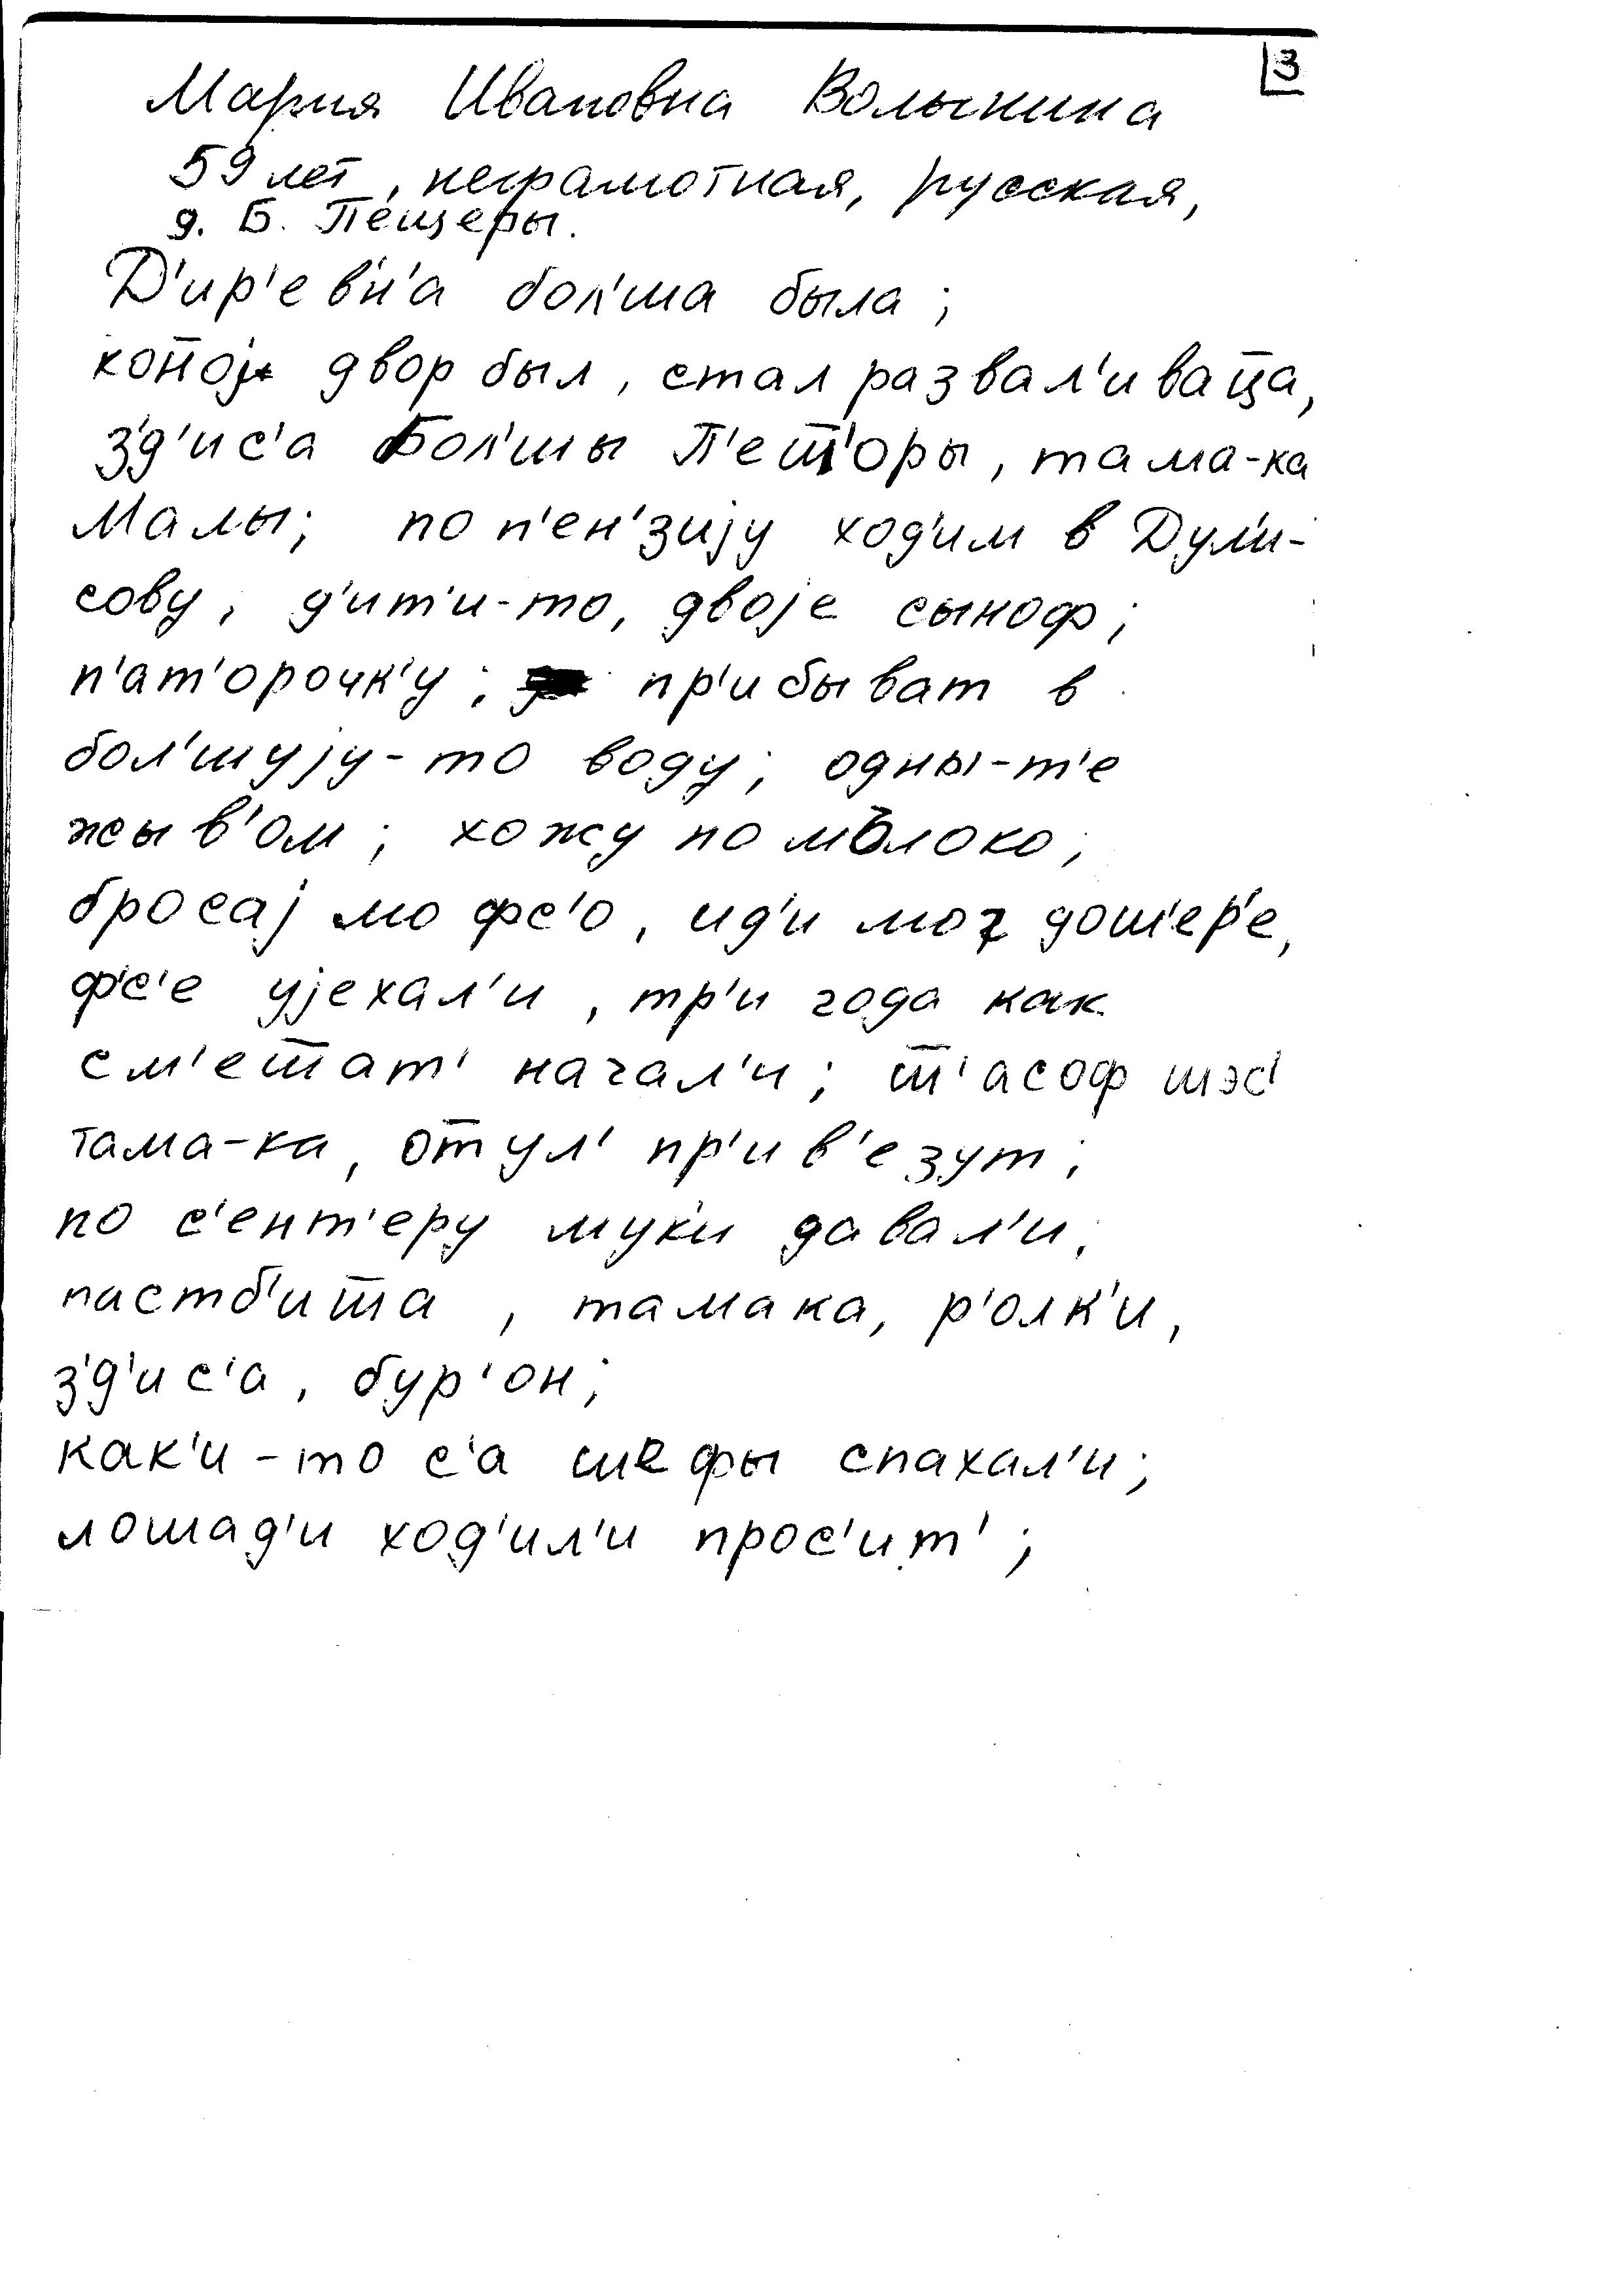 3
Мария Ивановна Волынина
59 лет, неграмотная, русская,
д. Б. Пещеры.
Д'ир'ев'н'а бол'ша была;
двор был, стал развал'ива̄ца,
з'д'ис'а Бол'шы П'еш̄'оры, тама-ка
Малы; по п'ен'зиjу ход'им в Дул'и-
сову, д'ит'и-то, двоjе сыноф;
п'ат'орочк'у; пр'ибыват в
бол'шуjу-то воду; одны-т'е
жыв'ом; хожу по молоко;
бросаj мо фс'о, ид'и моɣ дош'ер'е,
ф'с'е уjехал'и, тр'и года как
см'еш̄ат' начал'и; т̄'асоф шэс'
тама-ка, от̄ул' пр'ив'езут;
по с'ент'еру мук'и давал'и;
пастб'иш̄а, тамака, р'олк'и,
з'д'ис'а, бур'он;
как'и-то с'а шефы спахал'и;
лошад'и ход'ил'и прос'ит';